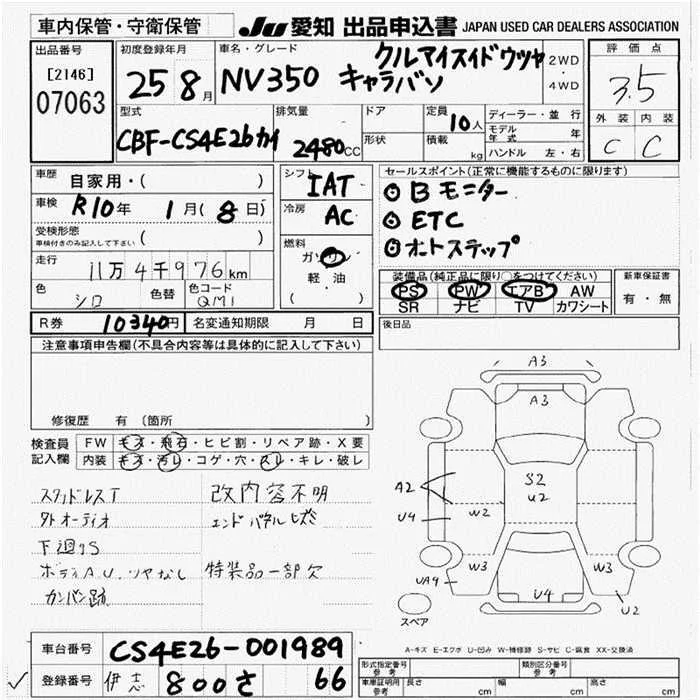 車内保管・守衛保管
JU 愛知 出品申込書 JAPAN USED CAR DEALERS ASSOCIATION
出品番号
[2146]
07063
初度登録年月
25 8月
車名・グレード
クルマイスイドウシャ
NV350 キャラバン
2WD
・
4WD
評価点
3.5
外装 内装
C C
型式
CBF-CS4E26カイ
排気量
2480cc
ドア
形状
定員
10人
積載
kg
ディーラー・並行
モデル年式 年
ハンドル 左・右
車歴 自家用・( )
車検 R10年 1月(8日)
受検形態
車検付きのみ記入して下さい ( )
走行
11万4千976km
色 シロ 色替 色コード QM1
シフト IAT
冷房 AC
燃料
ガソリン
軽・油
( )
セールスポイント(正常に機能するものに限ります)
◎Bモニター
◎ETC
◎オートステップ
装備品(純正品に限り○をつけてください)
PS PW エアB AW
SR ナビ TV カワシート
新車保証書
有・無
R券 10340円 名変通知期限 月 日
後日品
注意事項申告欄(不具合内容等は具体的に記入して下さい)
修復歴 有 (箇所 )
検査員記入欄
FW キズ・飛石・ヒビ割・リペア跡・X要
内装 キズ・汚レ・コゲ・穴・スレ・キレ・破レ
スタッドレスT 改内容不明
外オーディオ エンドパネルヒズミ
下廻りS
ボディA.U.ツヤなし 特装品一部欠
カンバン跡
A3
A3
S2
U2
A2
U4
W2
W2
W3
W3
UA9
U4
U2
スペア
A-キズ E-エクボ U-凹み W-補修跡 S-サビ C-腐食 XX-交換済
車台番号 CS4E26-001989
登録番号 800さ 66
型式指定番号
参考
類別区分番号
参考
車車証明用
参考
長さ cm 幅 cm 高さ cm